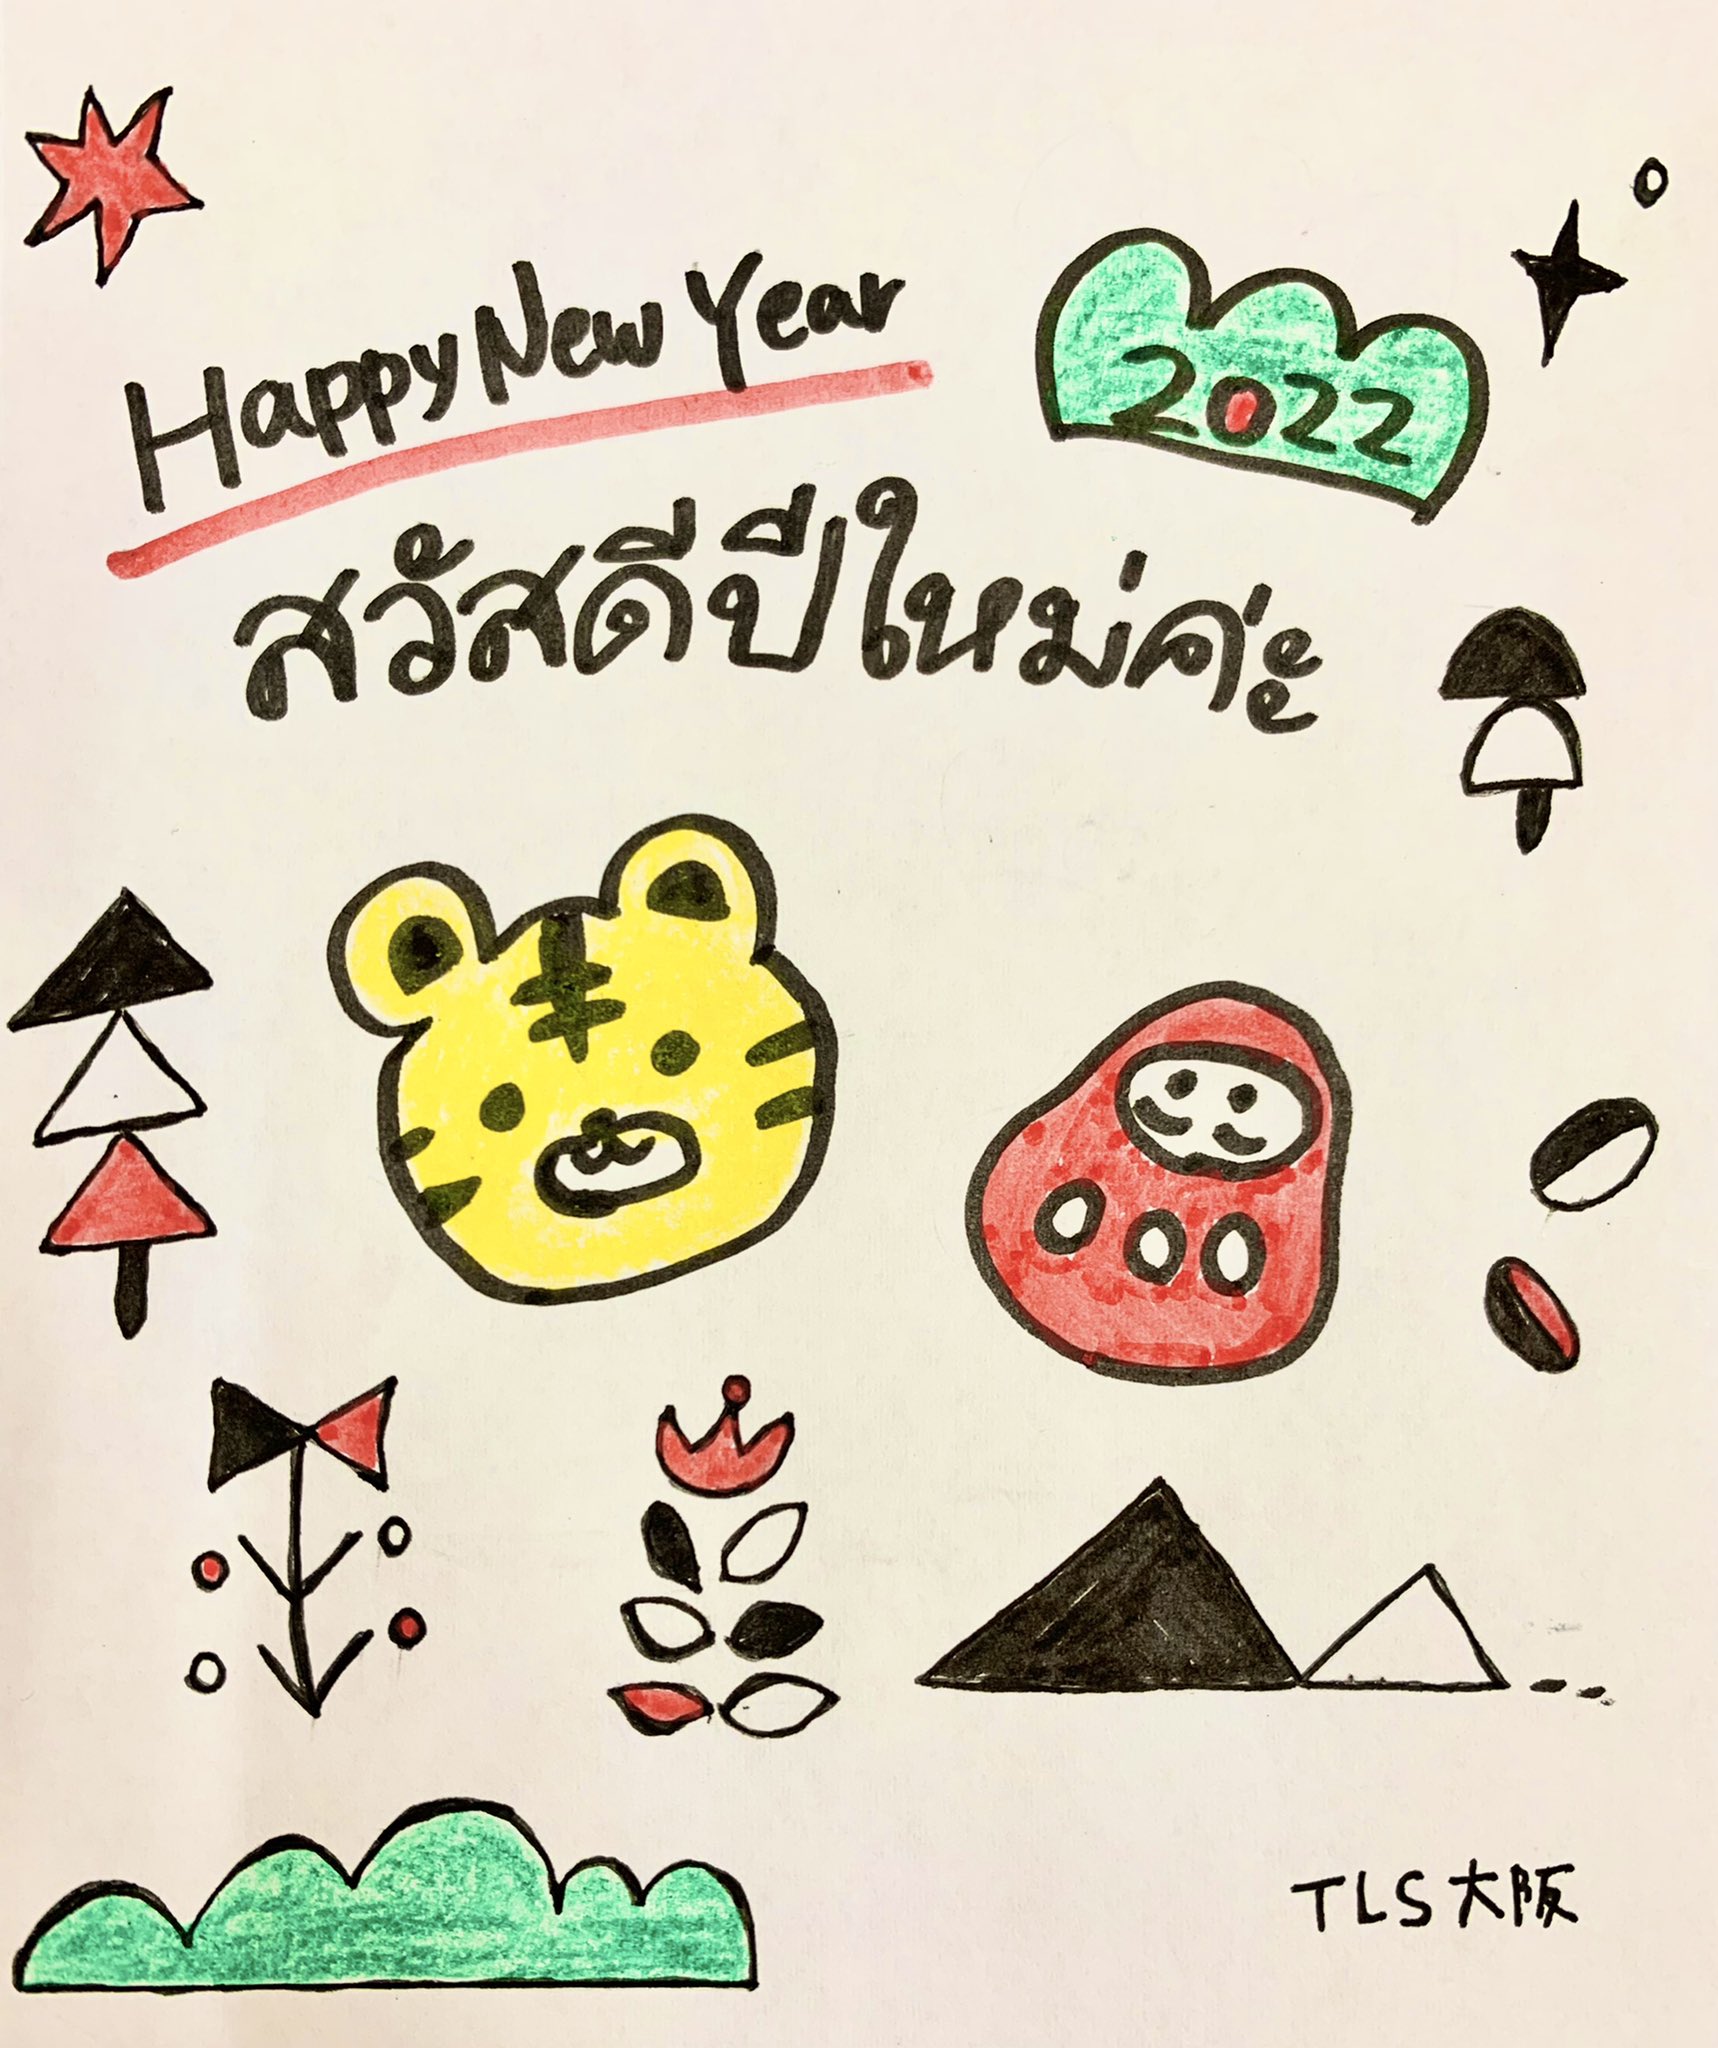 Happy New Year
2022
สวัสดีปีใหม่ค่ะ
TLS大阪